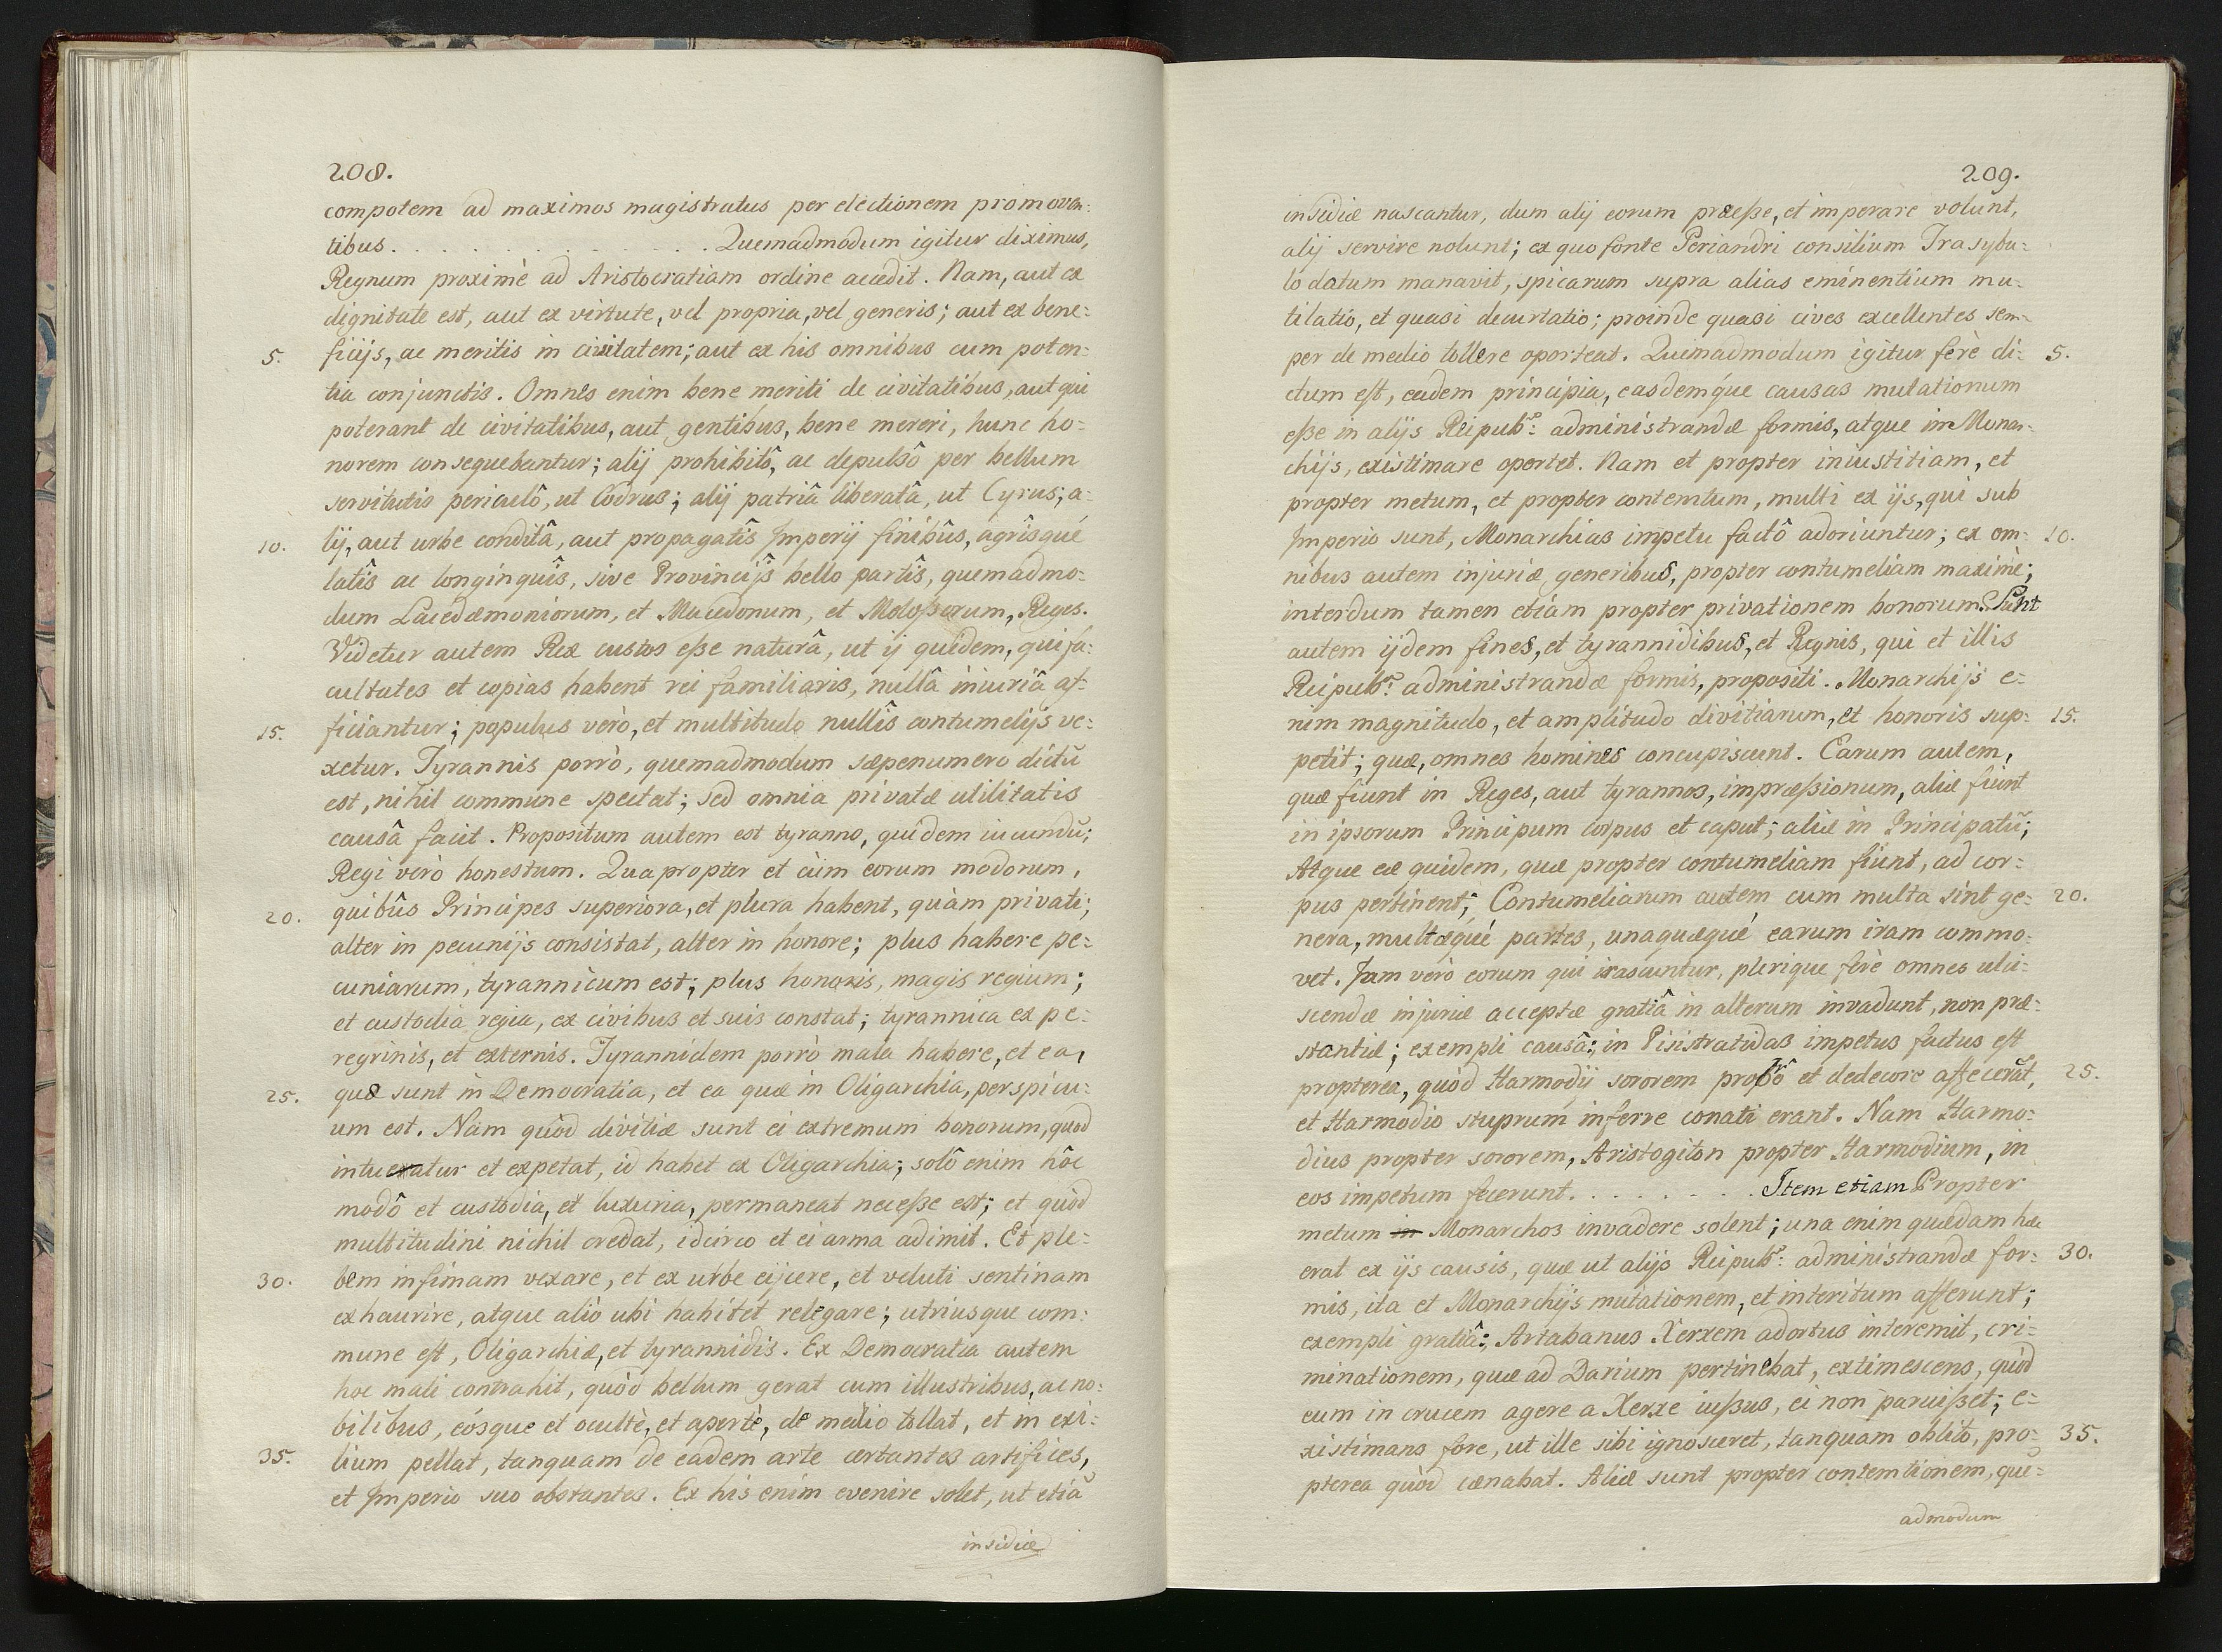 208.
compotem ad maximos magistratus per electionem promoven:
tibus. . . . . . . . . . . . . . . . Quemadmodum igitur diximus,
Regnum proximè ad Aristocratiam ordine accedit. Nam, aut ex
dignitate est, aut ex virtute, vel propria, vel generis; aut ex bene:
5. ficijs, ac meritis in civitatem; aut ex his omnibus cum poten:
tia conjunctis. Omnes enim bene meriti de civitatibus, aut qui
poterant de civitatibus, aut gentibus, bene mereri, hunc ho:
norem consequebantur; alij prohibitô, ac depulsô per bellum
servitutis periculô, ut Codrus; alij patriâ liberatâ, ut Cyrus; a:
10. lij, aut urbe conditâ, aut propagatîs Imperij finibûs, agrîsqué
latîs ac longinquîs, sive Provincijs bello partîs, quemadmo:
dum Lacedæmoniorum, et Macedonum, et Moloßorum, Reges.
Videtur autem Rex custos eße naturâ, ut ij quidem, qui fa:
cultates et copias habent rei familiaris, nullâ iniuriâ af:
15. ficiantur; populus verò, et multitudo nullîs contumelijs ve:
xetur. Tyrannis porrò, quemadmodum sæpenumero dictũ
est, nihil commune spectat; sed omnia privatæ utilitatis
causâ facit. Propositum autem est tyranno, quidem iucundũ;
Regi verò honestum. Quapropter et cùm eorum modorum,
20. quibûs Principes superiora, et plura habent, quàm privati;
alter in pecunijs consistat, alter in honore; plus habere pe:
cuniarum, tyrannicum est; plus honoris, magis regium;
et custodia regia, ex civibus et suis constat; tyrannica ex pe:
regrinis, et externis. Tyrannidem porrò mala habere, et ea,
25. quæ sunt in Democratia, et ea quæ in Oligarchia, perspicu:
um est. Nam quòd divitiæ sunt ei extremum bonorum, quod
intueatur et expetat, id habet ex Oligarchia; solô enim hôc
modô et custodia, et luxuria, permaneat neceße est; et quòd
multitudini nichil credat, idcirco et ei arma adimit. Et ple:
30. bem infimam vexare, et ex urbe eijcere, et veluti sentinam
exhaurire, atque aliò ubi habitet relegare; utriusque com:
mune est, Oligarchiæ, et tyrannidis. Ex Democratia autem
hoc mali contrahit, quòd bellum gerat cum illustribus, ac no:
bilibus, eósque et ocultè, et apertè, de medio tollat, et in exi:
35. lium pellat, tanquam de eadem arte certantes artifices,
et Imperio suo obstantes. Ex his enim evenire solet, ut etiã
insidiæ
209.
insidiæ nascantur, dum alij eorum præeße, et imperare volunt,
alij servire nolunt; ex quo fonte Periandri consilium Trasybu:
lo datum manavit, spicarum supra alias eminentium mu:
tilatio, et quasi decurtatio; proinde quasi cives excellentes sem:
per de medio tollere oporteat. Quemadmodum igitur ferè di: 5.
ctum est, eædem principia, easdemque causas mutationum
eße in alijs Reipub.æ administrandæ formis, atque in Monar:
chijs, existimare oportet. Nam et propter iniustitiam, et
propter metum, et propter contemtum, multi ex ijs, qui sub
Imperio sunt, Monarchias impetu factô adoriuntur; ex om: 10.
nibus autem injuriæ generibus, propter contumeliam maximè;
interdum tamen etiam propter privationem bonorum. Sunt
autem ijdem fines, et tyrannidibus, et Regnis, qui et illis
Reipub.æ administrandæ formis, propositi. Monarchijs e:
nim magnitudo, et amplitudo divitiarum, et honoris sup: 15.
petit; quæ, omnes homines concupiscunt. Earum autem,
quæ fiunt in Reges, aut tyrannos, impræßionum, aliæ fiunt
in ipsorum Principum corpus et caput; aliæ in Principatũ;
Atque eæ quidem, quæ propter contumeliam fiunt, ad cor:
pus pertinent; Contumeliarum autem cum multa sint ge: 20.
nera, multæqué partes, unaquæqué earum iram commo:
vet. Jam verò eorum qui irascuntur, plerique ferè omnes ulci:
scendæ injuriæ acceptæ gratiâ in alterum invadunt, non præ:
stantiæ; exempli causâ; in Pisistratidas impetus factus est
propterea, quòd Harmodij sororem probrô et dedecore affecerãt, 25.
et Harmodio stuprum inferre conati erant. Nam Harmo:
dius propter sororem, Aristogiton propter Harmodium, in
eos impetum fecerunt. . . . . . . . . Item etiam Propter
metum in Monarchos invadere solent; una enim quædam hæc
erat ex ijs causis, quæ ut alijs Reipub.æ administrandæ for: 30.
mis, ita et Monarchijs mutationem, et interitum afferunt;
exempli gratiâ; Artabanus Xerxem adortus interemit, cri:
minationem, quæ ad Darium pertinebat, extimescens, quòd
eum in crucem agere a Xerxe iußus, ei non paruißet; e:
xistimans fore, ut ille sibi ignosceret, tanquam oblito, pro: 35.
pterea quòd cænabat. Aliæ sunt propter contemtionem, que:
admodum